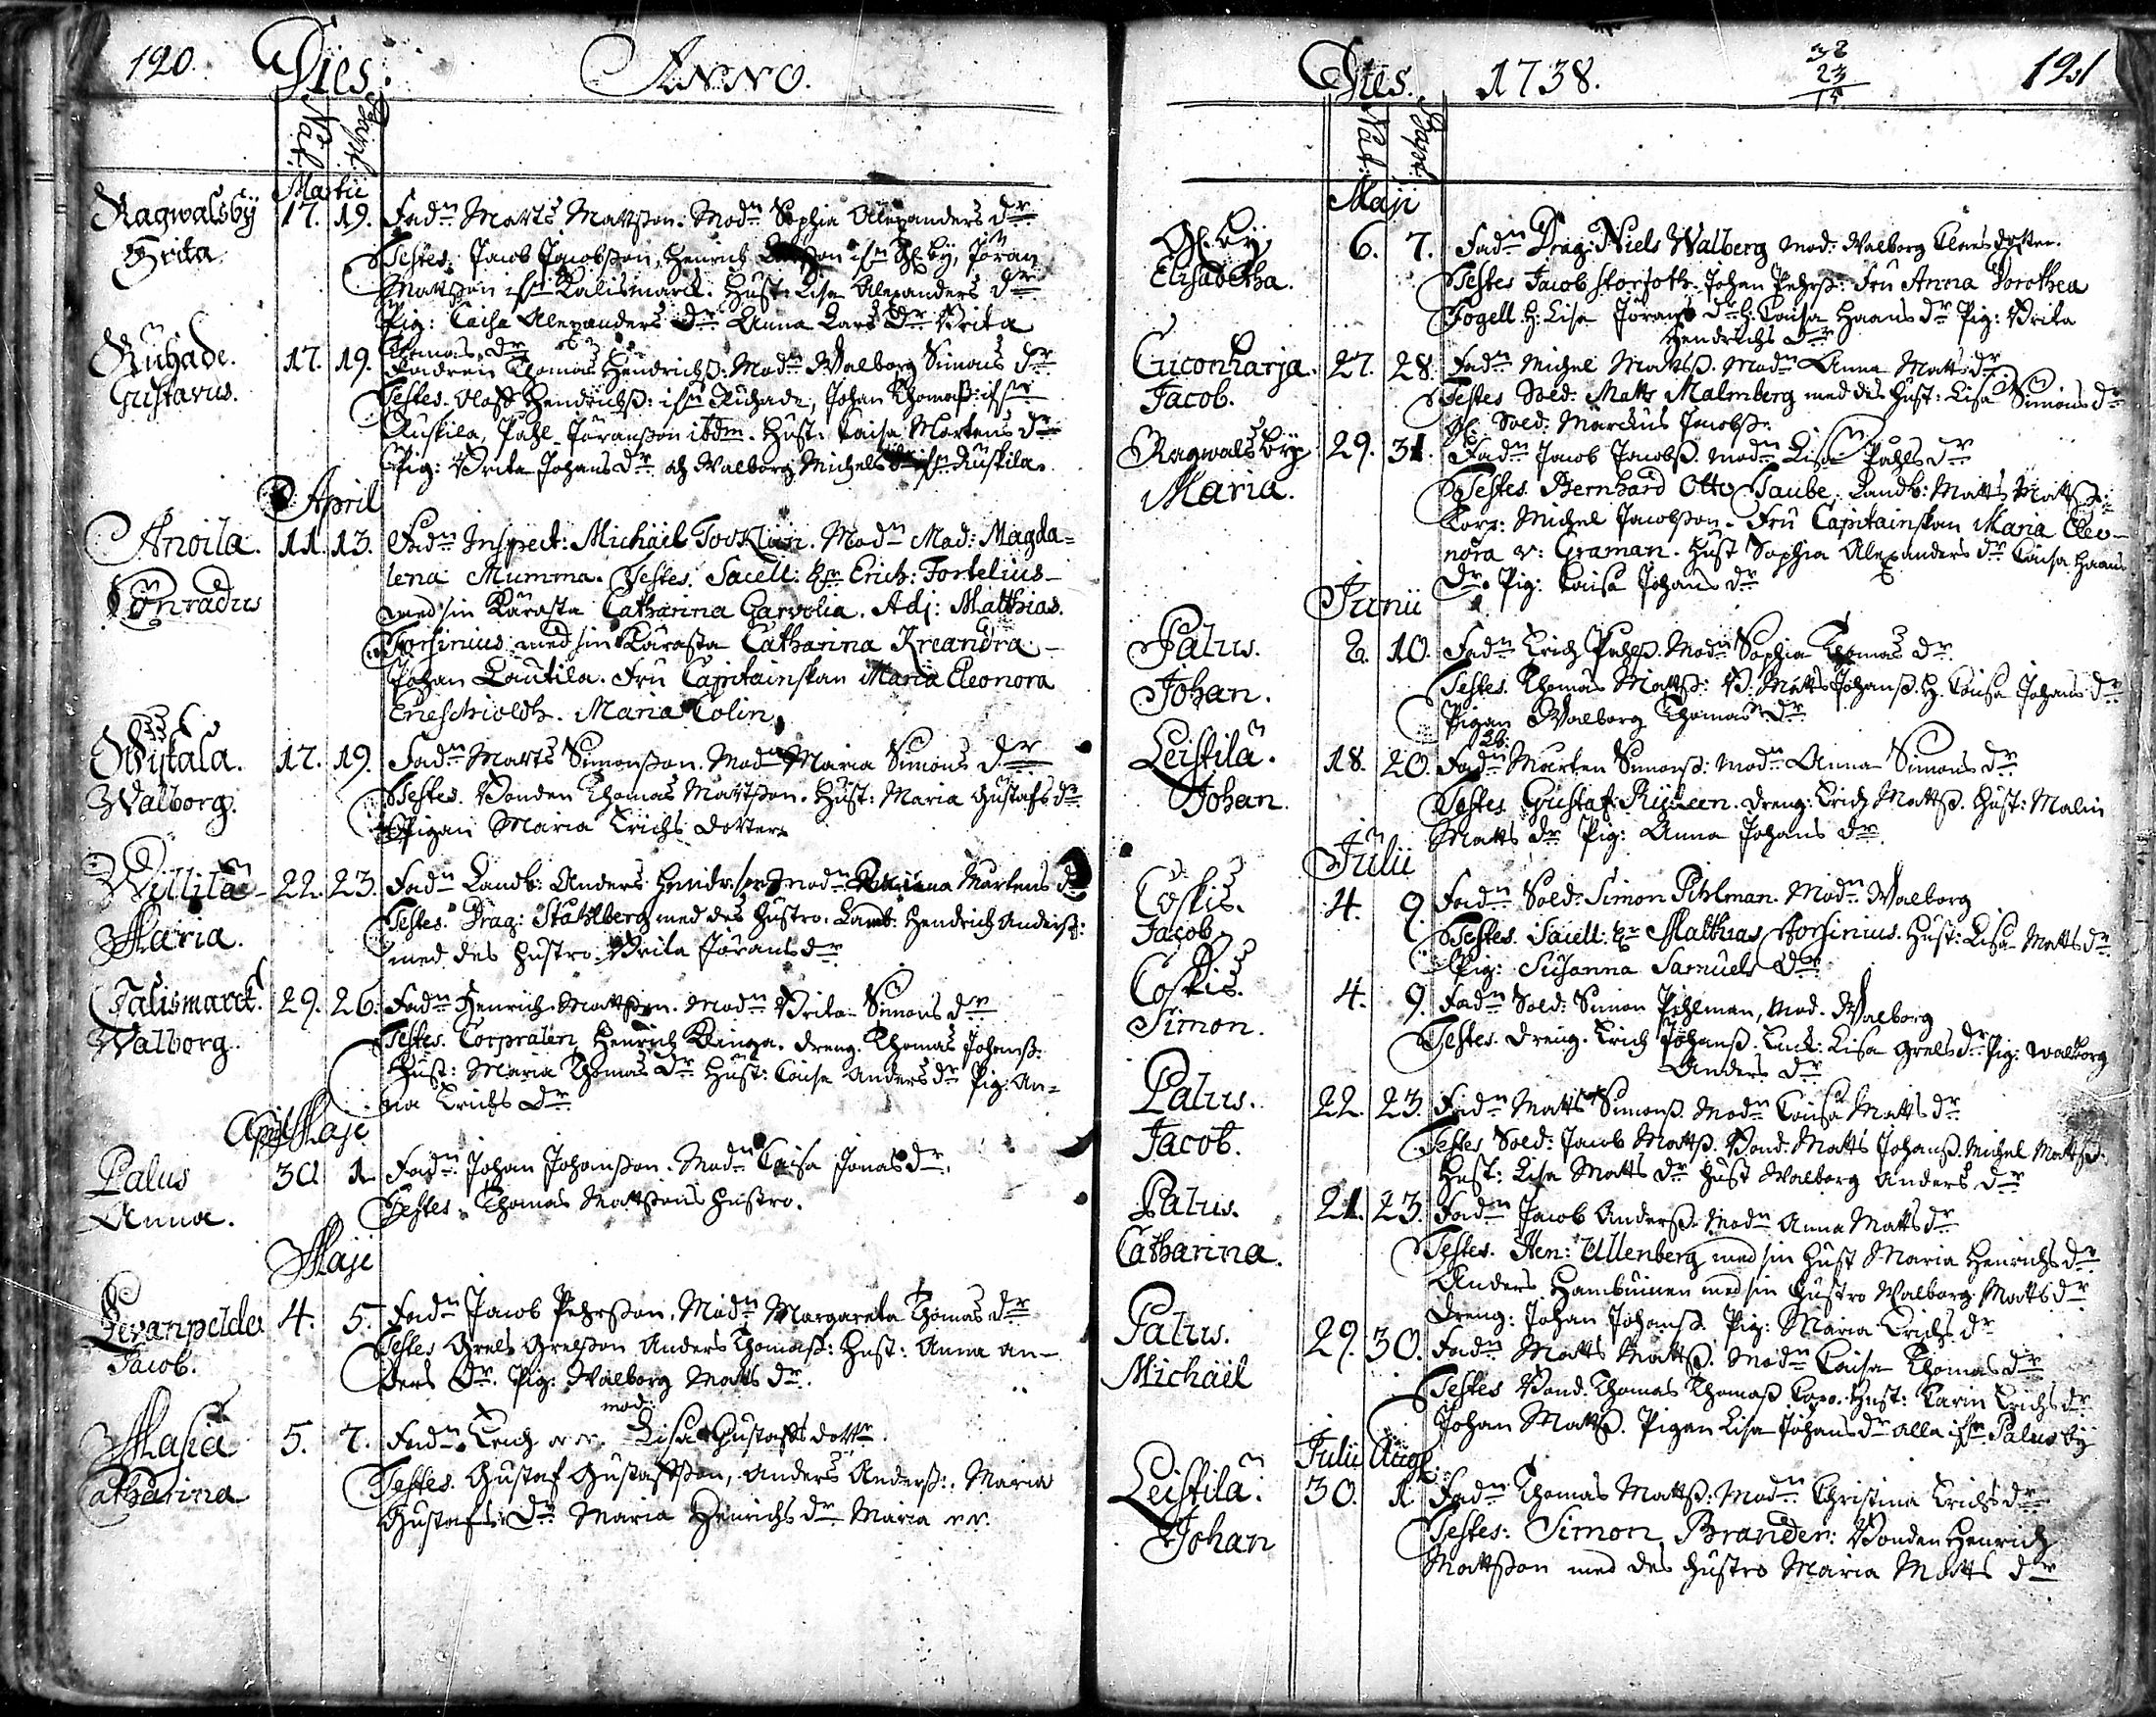 120. Dies. Anno.
Nat. Bapt.
Martii
Ragwalsbÿ 17. 19. Fadn Matts Mattsson. Modn Sophia Alexanders dr
Brita. Testes. Jacob Jacobsson, Henrich ifrn Gl:by, Jöran
Mattsson ifrn Kalismarck. Hust: Lisa Alexanders dr
Pig: Caisa Alexanders dr Anna Lars dr Brita
Thomas dr
Ruhade. 17. 19. Fadren Thomas Hendrichss: Modn Walborg Simons dr
Gustavus. Testes. Oloff Hendrichss: ifrn Ruhade, Johan Thomass: ifrn
Ruskila, Påhl Jöransson ibdm. Hust: Caisa Mårtens dr
Pig: Brita Johans dr och Walborg Michels dr ifrn Ruskila.
April
Anoila. 11. 13. Fadn Inspect: Michäel Tocklin. Modn Mad: Magda=
Conradus lena Mumma. Testes. Sacell: Hr Erich: Fortelius
med sin Kärasta Catharina Garvolia. Adj: Matthias
Forsinius med sin Kärasta Catharina Kreandra
Johan Lautila. Fru Capitainskan Maria Eleonora
Eneschioldh. Maria Colin.
Wijtala. 17. 19. Fadn Matts Simonsson. Modn Maria Simons dr
Walborg. Testes. Bonden Thomas Mattsson. Hust: Maria Gustafs dr
Pigan Maria Erichs dotter
Willila 22. 23. Fadn Landb: Anders Modn Mårtens dr
Maria. Testes. Drag: Stahlberg med des hustro. Landb. Hendrich Anderss:
med des hustro Brita Jörans dr
Calismarck. 29. 26. Fadn Henrich Mattsson. Modn Brita Simons dr
Walborg. Testes. Corpralen Henrich Ringa. Dreng. Thomas Johanss.
Hust: Maria Thomas dr Hust: Caisa Anders dr Pig: An=
na Erichs dr
April Maji
Palus 30. 1. Fadn Johan Johansson. Modn Caisa Jonas dr.
Anna. Testes. Thomas Mattssons hustro.
Maji
Levanpelde 4. 5. Fadn Jacob Pehrsson. Modn Margareta Thomas dr
Jacob. Testes Grels Grelsson Anders Thomass: Hust: Anna An-
ders dr. Pig: Walborg Matts dr.
mod:
Masia 5. 7. Fadn Erich Lisa Gustafs dottr
Catharina Testes. Gustaf Gustafsson, Anders Anderss: Maria
Gustafs dr Maria Henrichs dr Maria
Dies. 1738. 121
38
23
15
Nat. Bapt.
Maji
Gl:by 6. 7. Fadn Drag: Niels Walberg mod: Walborg Clemes dotter.
Elisabetha. Testes Jacob Johan Pehrss: Fru Anna Dorothea
Fogell. H: Lisa Jörans dr H: Caisa Hans dr Pig: Brita
Hendrichs dr
Cuconharja. 27. 28. Fadn Michel Mattss. Modn Anna Matts dr
Jacob. Testes Sold: Matts Malmberg med des Hust: Lisa Simons dr
Sold: Marckus Jacobss.
Ragwalsby 29. 31. Fadn Jacob Jacobss. Modn Lisa Påhls dr
Maria. Testes. Bernhard Otto Taube. Landb: Matts Mattss:
Corp: Michel Jacobsson. Fru Capitainskan Maria Eleo-
nora v: Graman. Hust Sophia Alexanders dr Caisa Hans
dr Pig: Caisa Johans dr
Junii
Palus. 8. 10. Fadn Erich Påhlss. Modn Sophia Thomas dr
Johan. Testes. Thomas Mattss: B. Matts Johanss. H: Caisa Johans dr
Pigan Walborg Thomas dr
Leistila. 18. 20. Fadn Mårten Simonss: Modn Anna Simons dr
Johan. Testes Gustaf: Rydeen. Dreng: Erich Mattss. Hust: Malin
Matts dr Pig: Anna Johans dr
Julii
Coskis. 4. 9. Fadn Sold: Simon Pihlman. Modn Walborg
Jacob. Testes. Sacell: Hr Matthias Forsinius. Hust: Lisa Matts dr
Pig: Susanna Samuels dr
Coskis. 4. 9. Fadn Sold: Simon Pihlman, Mod. Walborg
Simon. Testes. Dreng. Erich Johanss. Lisa Grels dr Pig: Walborg
Anders dr
Palus. 22. 23. Fadn Matts Simonss. Modn Caisa Matts dr
Jacob. Testes Sold: Jacob Mattss. Bond. Matts Johanss. Michel Mattss.
Hust: Lisa Matts dr Hust Walborg Anders dr
Palus. 21. 23. Fadn Jacob Anderss. Modn Anna Matts dr
Catharina. Testes. Hen: Ullenberg med sin Hust Maria Henrichs dr
Anders Hambuinen med sin Hustro Walborg Matts dr
Dreng: Johan Johanss. Pig: Maria Erichs dr
Palus. 29. 30. Fadn Matts Mattss. Modn Caisa Thomas dr
Michäel Testes Bond. Thomas Thomass Hust: Carin Erichs dr
Johan Mattss. Pigan Lisa Johans dr alla ifrn Palus by
Julii Aug.
Leistila. 30. 1. Fadn Thomas Mattss: Modn Christina Erichs dr
Johan Testes: Simon Brander: Bonden Henrich
Mattsson med des hustro Maria Matts dr